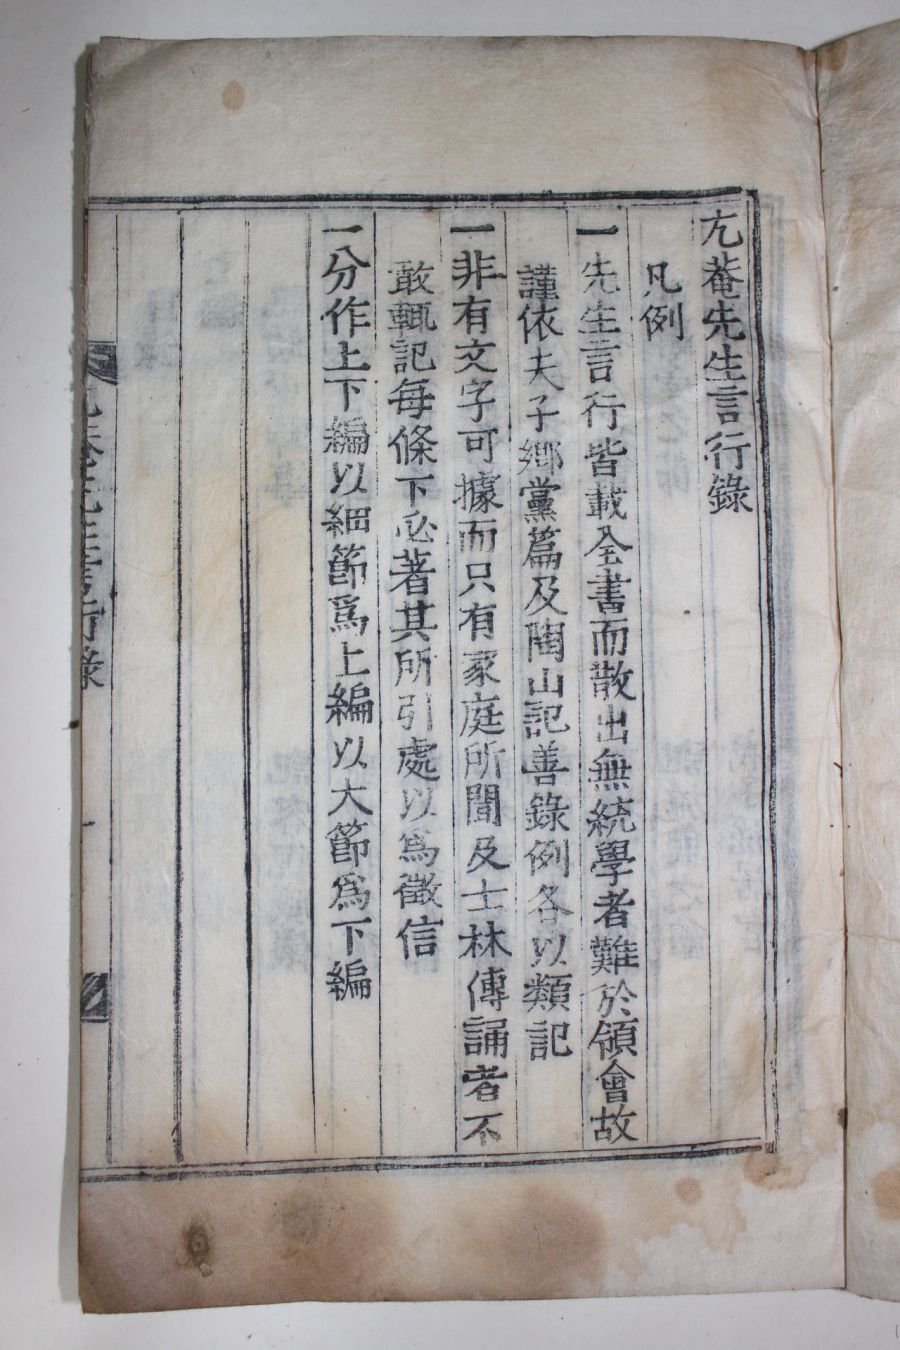 亢菴先生言行錄
凡例
一先生言行皆載全書而散出無統學者難於領會故
謹依夫子鄉黨篇及陶山記善錄例各以類記
一非有文字可據而只有家庭所聞及士林傳誦者不
敢輒記每條下必著其所引處以爲徵信
一分作上下編以細節爲上編以大節爲下編
先生言行錄
一